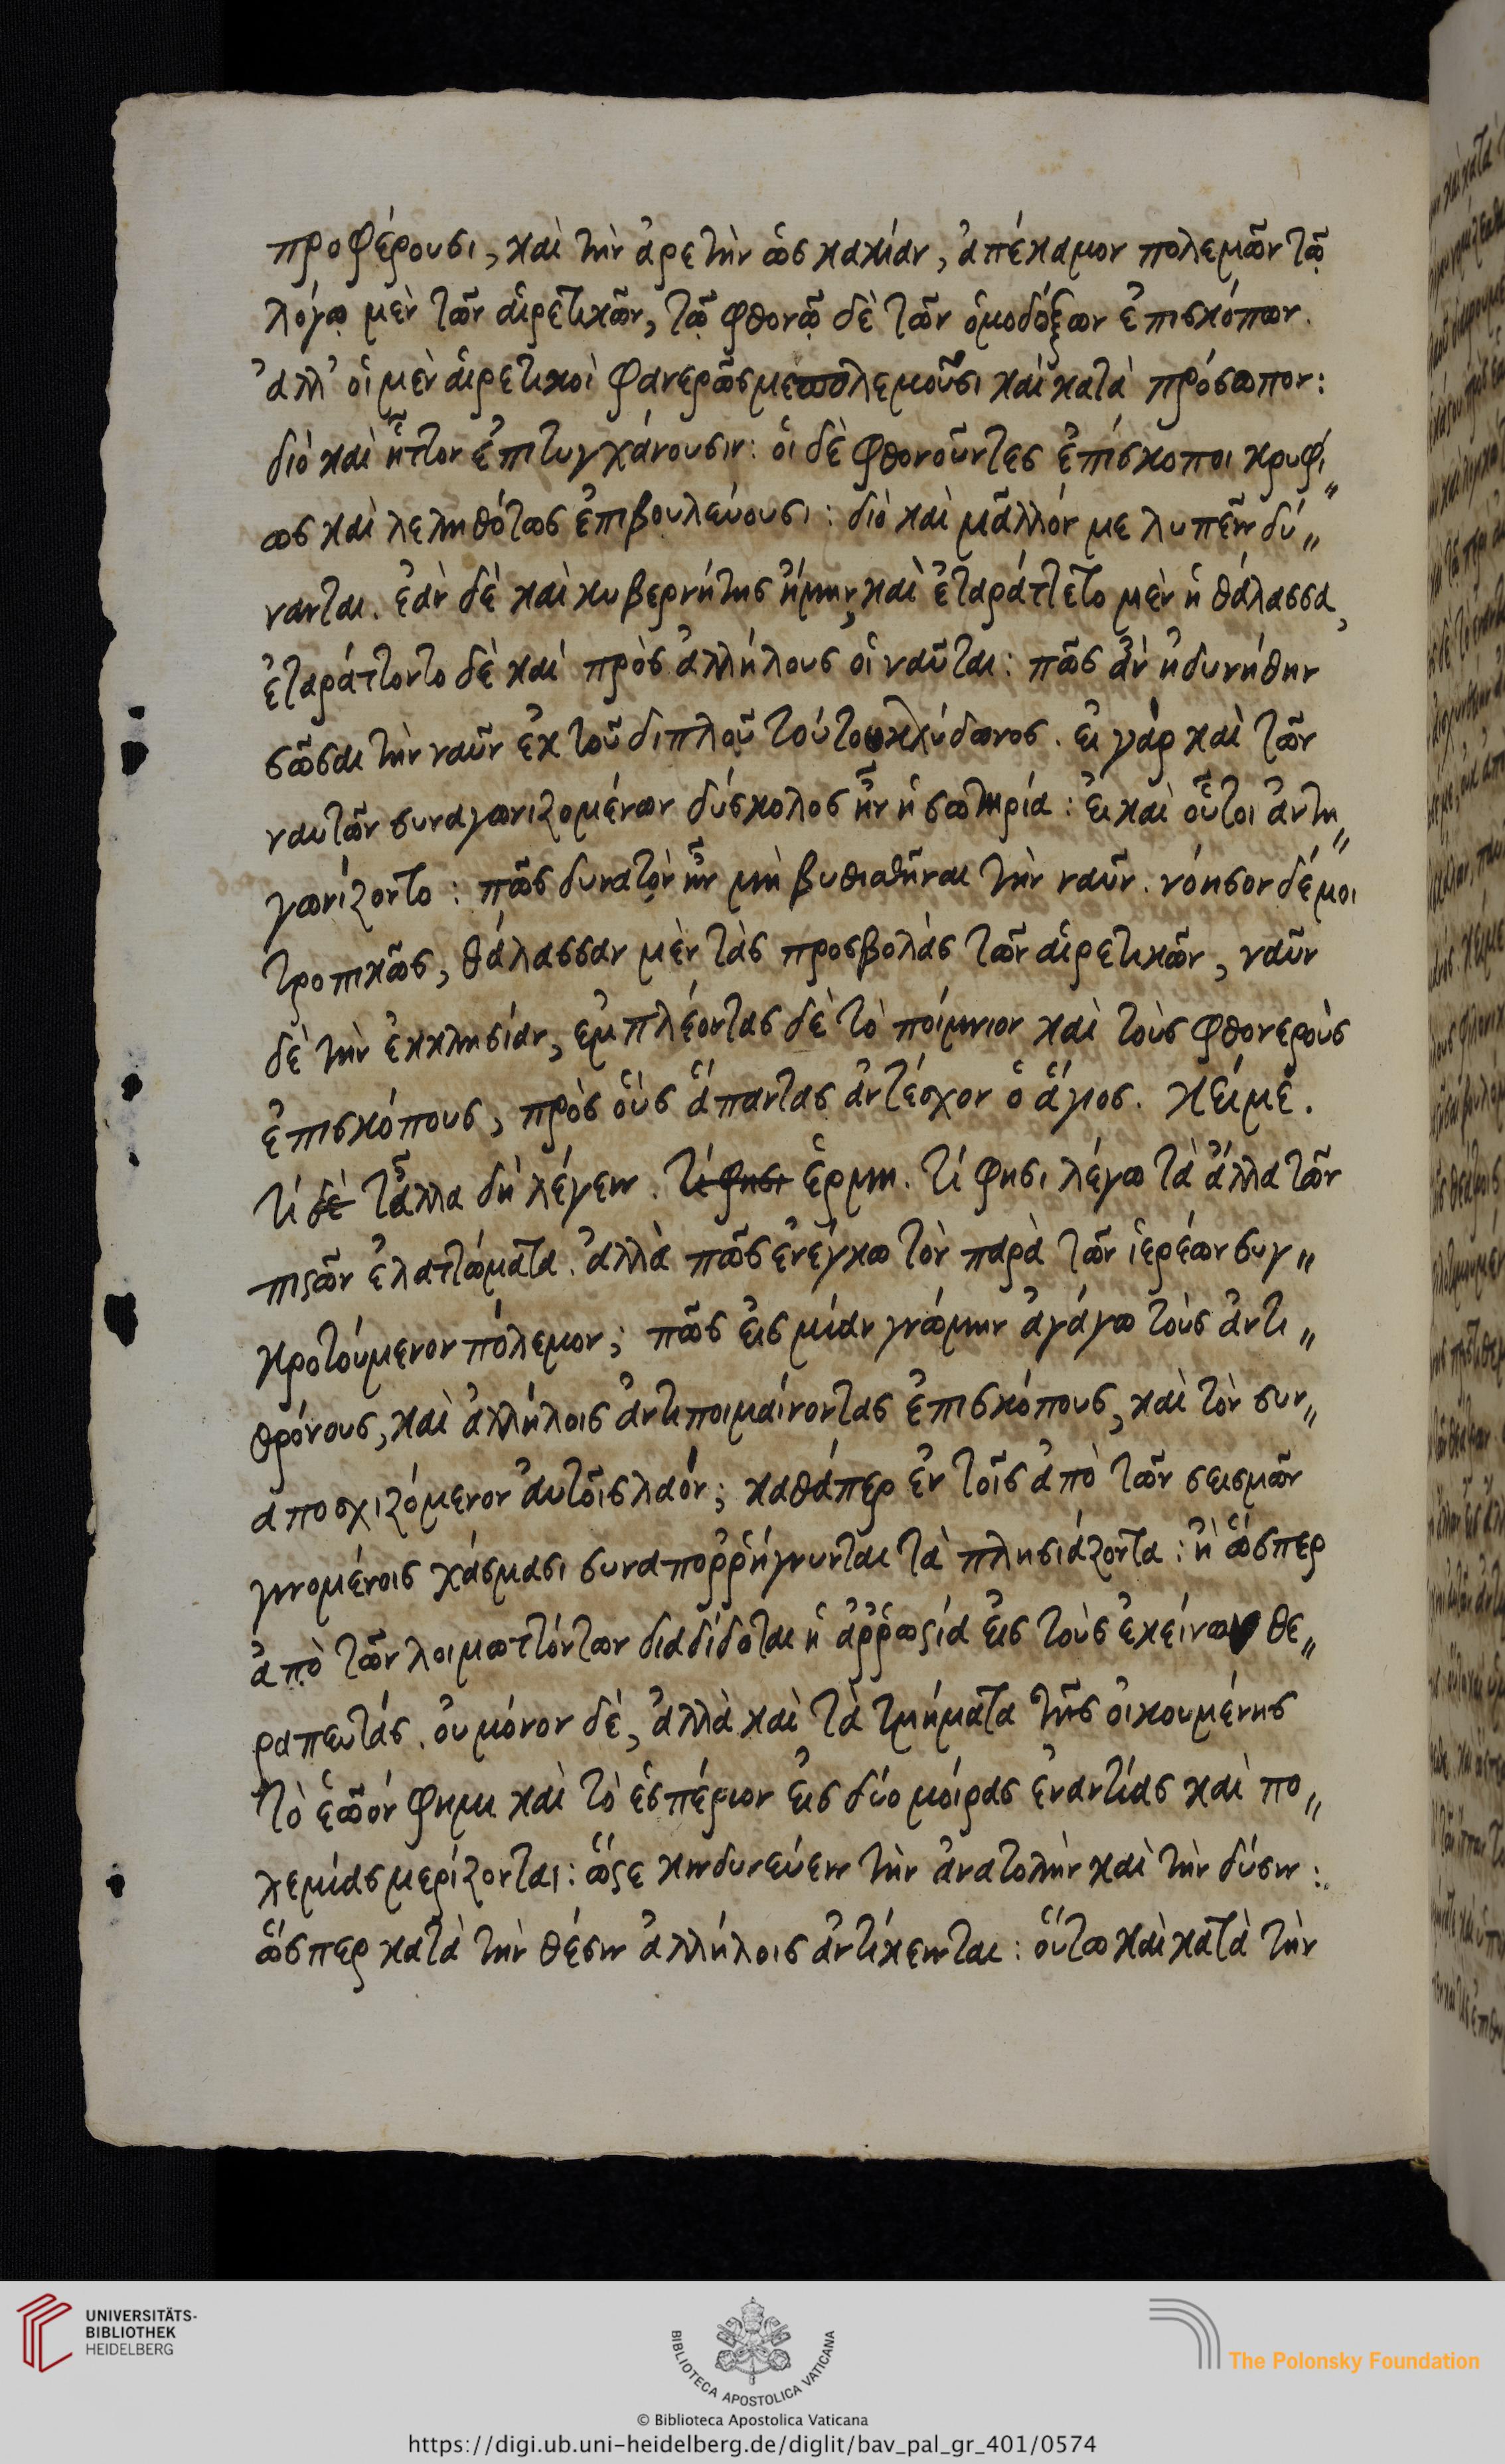 προφέρουσι, καὶ τὴν ἀρετὴν ὡς κακίαν, ἀπέκαμον πολεμῶν τῷ
λόγῳ μὲν τῶν αἱρετικῶν, τῷ φθονῷ δὲ τῶν ὁμοδόξων ἐπισκόπων.
ἀλλ' οἱ μὲν αἱρετικοὶ φανερῶς με πολεμοῦσι καὶ κατὰ πρόσωπον:
διὸ καὶ ἧττον ἐπιτυγχάνουσιν: οἱ δὲ φθονοῦντες ἐπίσκοποι κρυφί„
ως καὶ λεληθότως ἐπιβουλεύουσι: διὸ καὶ μᾶλλόν με λυπεῖν δύ„
νανται. ἐὰν δὲ καὶ κυβερνήτης ἤμην, καὶ ἐταράττετο μὲν ἡ θάλασσα,
ἐταράττοντο δὲ καὶ πρὸς ἀλλήλους οἱ ναῦται: πῶς ἂν ἠδυνήθην
σῶσαι τὴν ναῦν ἐκ τοῦ διπλοῦ τούτου κλύδωνος. εἰ γὰρ καὶ τῶν
ναυτῶν συναγωνιζομένων δύσκολος ἦν ἡ σωτηρία: εἰ καὶ οὗτοι ἀντη„
γωνίζοντο: πῶς δυνατὸν ἦν μὴ βυθισθῆναι τὴν ναῦν. νόησον δέ μοι
τροπικῶς, θάλασσαν μὲν τὰς προσβολὰς τῶν αἱρετικῶν, ναῦν
δὲ τὴν ἐκκλησίαν, ἐμπλέοντας δὲ τὸ ποίμνιον καὶ τοὺς φθονεροὺς
ἐπισκόπους, πρὸς οὓς ἅπαντας ἀντέσχον ὁ ἅγιος. κείμε.
τί δὲ τἆλλα δὴ λέγειν. τί φησι ἑρμη. τί φησι λέγω τὰ ἄλλα τῶν
πιςῶν ἐλαττώματα. ἀλλὰ πῶς ἐνέγκω τὸν παρὰ τῶν ἱερέων συγ„
κροτούμενον πόλεμον; πῶς εἰς μίαν γνώμην ἀγάγω τοὺς ἀντι„
θρόνους, καὶ ἀλλήλοις ἀντιποιμαίνοντας ἐπισκόπους, καὶ τὸν συν„
αποσχιζόμενον αὐτοῖς λαόν; καθάπερ ἐν τοῖς ἀπὸ τῶν σεισμῶν
γινομένοις χάσμασι συναποῤῥήγνυνται τὰ πλησιάζοντα: ἢ ὥσπερ
ἀπὸ τῶν λοιμωττόντων διαδίδοται ἡ ἀῤῥωςία εἰς τοὺς ἐκείνων θε„
ραπευτάς. οὐ μόνον δέ, ἀλλὰ καὶ τὰ τμήματα τῆς οἰκουμένης
τὸ ἑῷόν φημι καὶ τὸ ἑσπέριον εἰς δύο μοίρας ἐναντίας καὶ πο„
λεμίας μερίζονται: ὥςε κινδυνεύειν τὴν ἀνατολὴν καὶ τὴν δύσιν:
ὥσπερ κατὰ τὴν θέσιν ἀλλήλοις ἀντίκεινται: οὕτω καὶ κατὰ τὴν
UNIVERSITÄTS-
BIBLIOTHEK
HEIDELBERG
BIBLIOTECA APOSTOLICA VATICANA
The Polonsky Foundation
© Biblioteca Apostolica Vaticana
https://digi.ub.uni-heidelberg.de/diglit/bav_pal_gr_401/0574